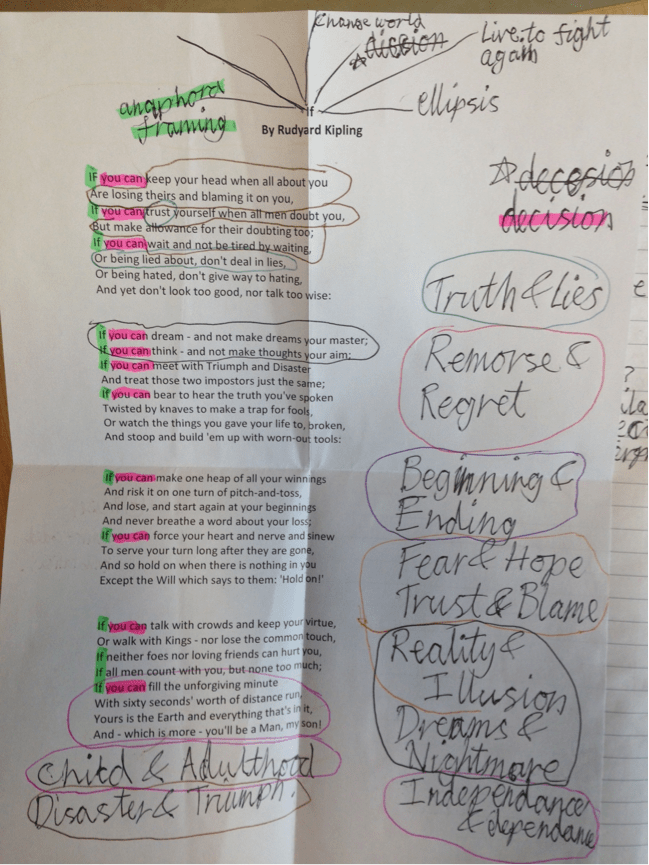 Change world
diction
Live to fight
again
anaphora
framing
If
ellipsis
By Rudyard Kipling
decosion
decision
IF you can keep your head when all about you
Are losing theirs and blaming it on you,
If you can trust yourself when all men doubt you,
But make allowance for their doubting too;
If you can wait and not be tired by waiting,
Or being lied about, don't deal in lies,
Or being hated, don't give way to hating,
And yet don't look too good, nor talk too wise:
If you can dream - and not make dreams your master;
If you can think - and not make thoughts your aim;
If you can meet with Triumph and Disaster
And treat those two impostors just the same;
If you can bear to hear the truth you've spoken
Twisted by knaves to make a trap for fools,
Or watch the things you gave your life to, broken,
And stoop and build 'em up with worn-out tools:
If you can make one heap of all your winnings
And risk it on one turn of pitch-and-toss,
And lose, and start again at your beginnings
And never breathe a word about your loss;
If you can force your heart and nerve and sinew
To serve your turn long after they are gone,
And so hold on when there is nothing in you
Except the Will which says to them: 'Hold on!'
If you can talk with crowds and keep your virtue,
Or walk with Kings - nor lose the common touch,
If neither foes nor loving friends can hurt you,
If all men count with you, but none too much;
If you can fill the unforgiving minute
With sixty seconds' worth of distance run,
Yours is the Earth and everything that's in it,
And - which is more - you'll be a Man, my son!
Child & Adulthood
Disaster & Triumph.
Truth & Lies
Remorse &
Regret
Beginning &
Ending
Fear & Hope
Trust & Blame
Reality &
Illusion
Dreams &
Nightmare
Independance
& dependance